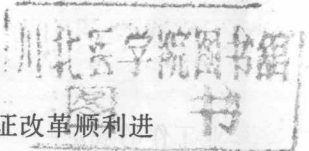 川北医学院图书馆
图 书
证改革顺利进